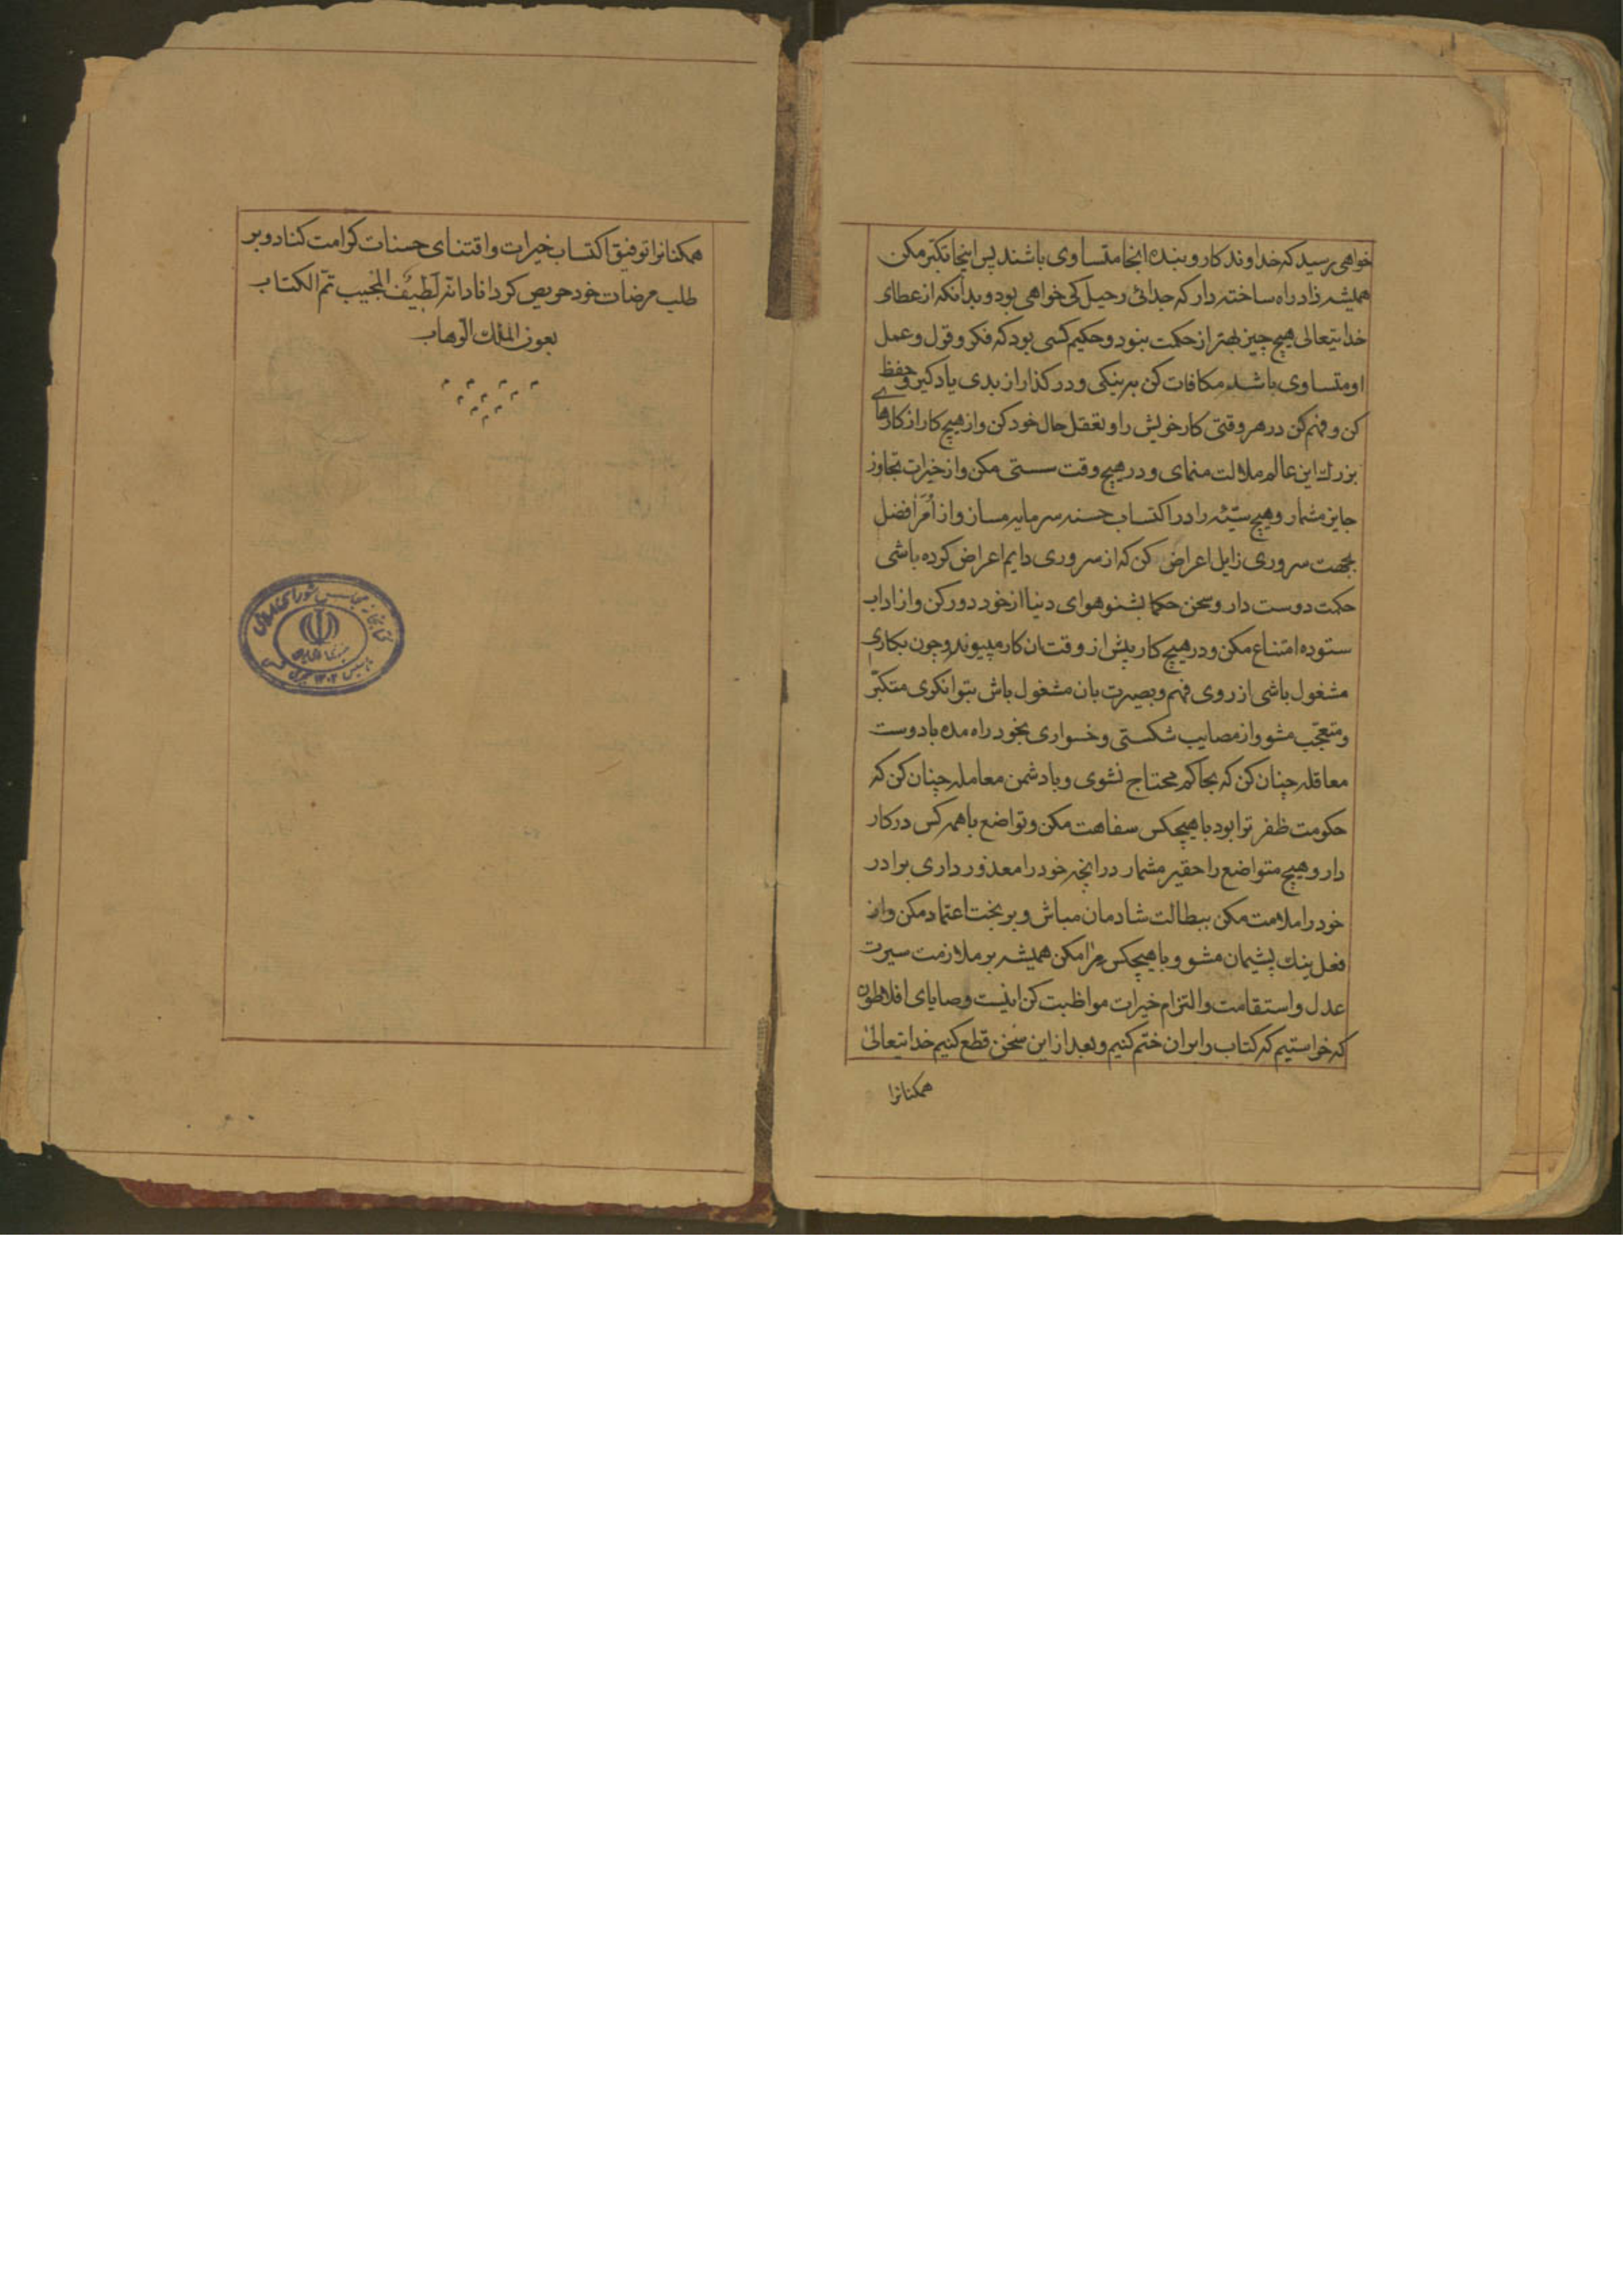 خواهی رسید که خداوندکار و بنده انجا متساوی باشند پس اینجا تکبّر مکن
همیشه زاد راه ساخته دار که چه دانی رحیل کی خواهی بود و بدانکه از عطای
خدایتعالی هیچ چیز بهتر از حکمت نبود و حکیم کسی بود که فکر و قول و عمل
او متساوی باشد مکافات کن به نیکی و در کذار از بدی یاد کیر و حفظ
کن و فهم کن در هر وقتی کار خویش را و تعقل حال خود کن و از هیچ کار از کارهای
بزرك این عالم ملالت منمای و در هیچ وقت سستی مکن و از خیرات تجاوز
جایز مشمار و هیچ سیّئه را در اکتساب حسنه سرمایه مساز و از امر افضل
بجهت سروری زایل اعراض کن که از سروری دایم اعراض کرده باشی
حکمت دوست دار و سخن حکما بشنو هوای دنیا از خود دور کن و از اداب
ستوده امتناع مکن و در هیچ کار پیش از وقت ان کار مپیوند و چون بکاری
مشغول باشی از روی فهم و بصیرت بان مشغول باش بتوانکری متکبّر
و متعجّب مشو و از مصایب شکستی و خواری بخود راه مده با دوست
معاقله چنان کن که بحاکم محتاج نشوی و با دشمن معامله چنان کن که
حکومت ظفر ترا بود با هیچکس سفاهت مکن و تواضع با همه کس در کار
دار و هیچ متواضع را حقیر مشمار در انچه خود را معذور داری برادر
خود را ملامت مکن ببطالت شادمان مباش و بر بخت اعتماد مکن و از
فعل نیك پشیمان مشو و با هیچکس مرا مکن همیشه بر ملازمت سیرت
عدل و استقامت و التزام خیرات مواظبت کن اینست وصایای افلاطون
که خواستیم که کتاب را بران ختم کنیم و بعد از این سخن قطع کنیم خدایتعالی
همکنانرا
همکنانرا توفیق اکتساب خیرات و اقتنای حسنات کرامت کناد و بر
طلب مرضات خود حریص کرداناد انه لطیف المجیب تمّ الکتاب
بعون الملك الوهاب
کتابخانه مجلس شورای اسلامی